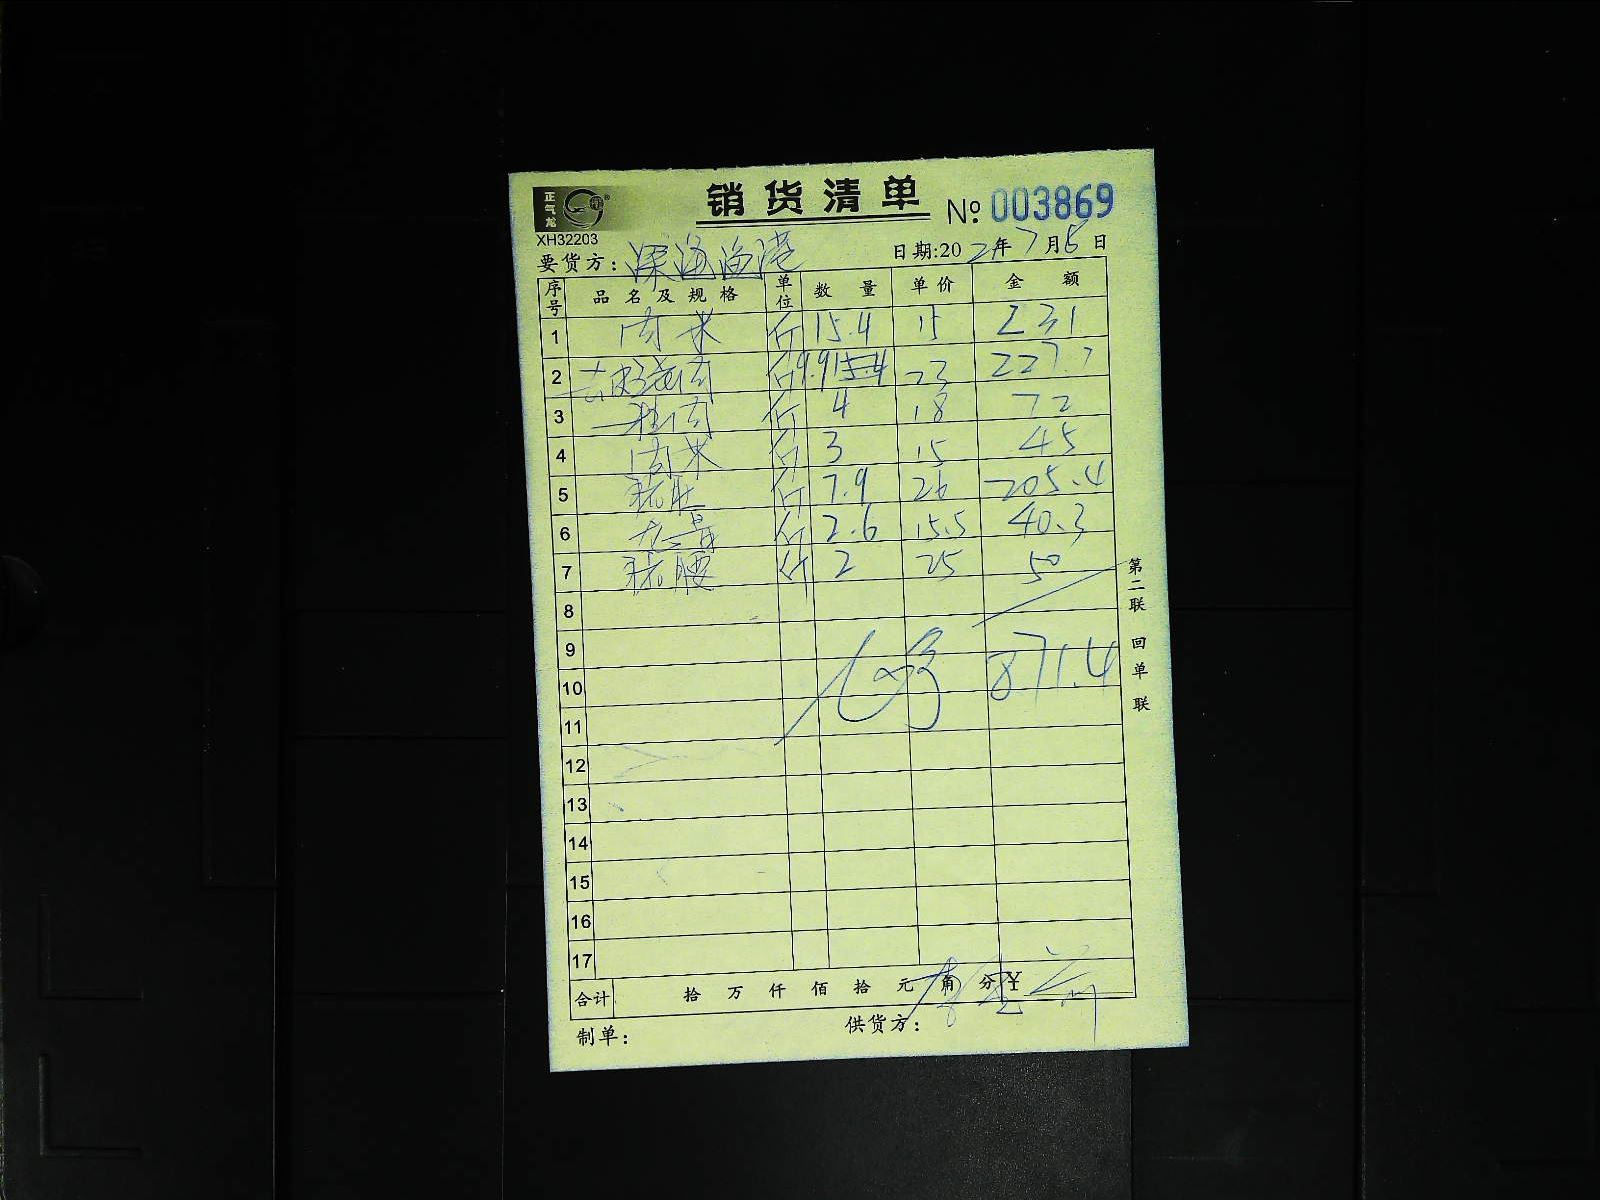 正气龙
销货清单 № 003869
XH32203
要货方: 深海渔港 日期:202年7月5日
序号 品名及规格 单位 数量 单价 金额
1 肉米 斤 15.4 15 231
2 肉 斤 9.9 23 227.7
3 肉 斤 4 18 72
4 肉米 斤 3 15 45
5 猪肚 斤 7.9 26 205.4
6 斤 2.6 15.5 40.3
7 猪腰 斤 2 25 50
8
9
10 871.4
11
12
13
14
15
16
17
合计 拾 万 仟 佰 拾 元 角 分 ¥
制单: 供货方:
第二联 回单联